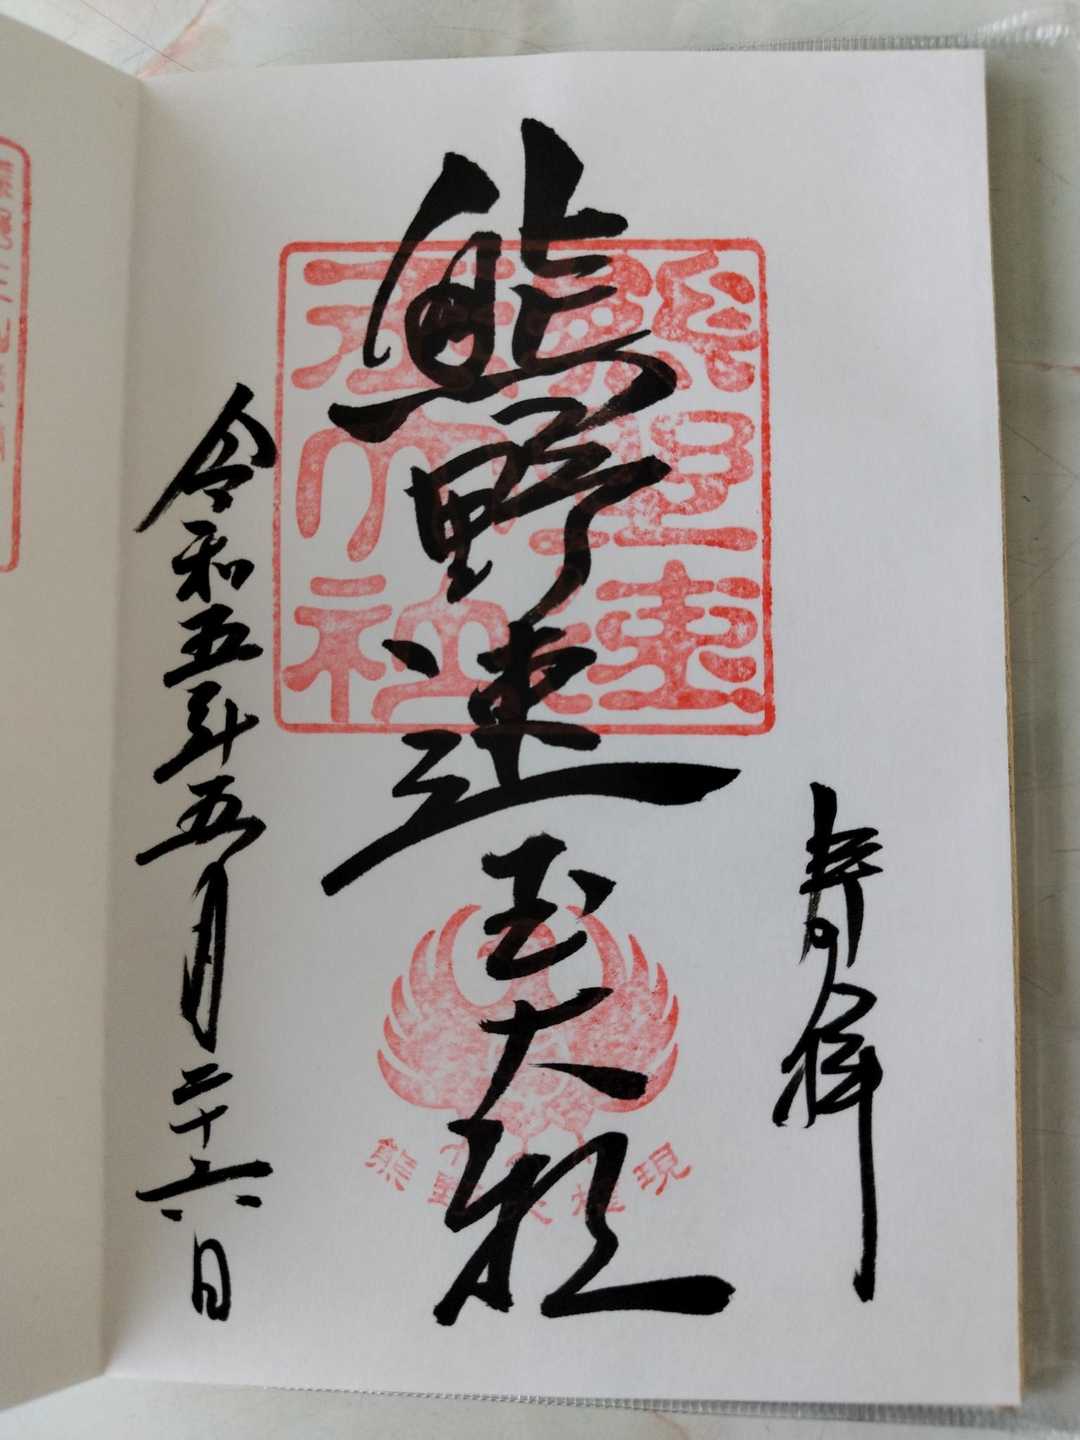 奉拝
熊野速玉大社
熊野速玉大社
熊野大権現
令和五年五月二十六日